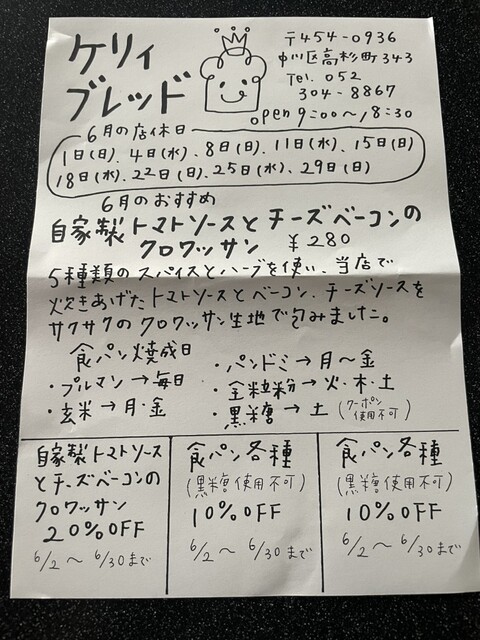 ケリィ
ブレッド
〒454-0936
中川区高杉町343
Tel. 052
304-8867
open 9:00〜18:30
6月の店休日
1日(日)、4日(水)、8日(日)、11日(水)、15日(日)
18日(水)、22日(日)、25日(水)、29日(日)
6月のおすすめ
自家製トマトソースとチーズベーコンの
クロワッサン ¥280
5種類のスパイスとハーブを使い、当店で
炊きあげたトマトソースとベーコン、チーズソースを
サクサクのクロワッサン生地で包みました。
食パン焼成日
・プルマン→毎日
・玄米→月・金
・パンドミ→月〜金
・全粒粉→火・木・土
・黒糖→土(クーポン使用不可)
自家製トマトソース
とチーズベーコンの
クロワッサン
20%OFF
6/2〜6/30まで
食パン各種
(黒糖使用不可)
10%OFF
6/2〜6/30まで
食パン各種
(黒糖使用不可)
10%OFF
6/2〜6/30まで